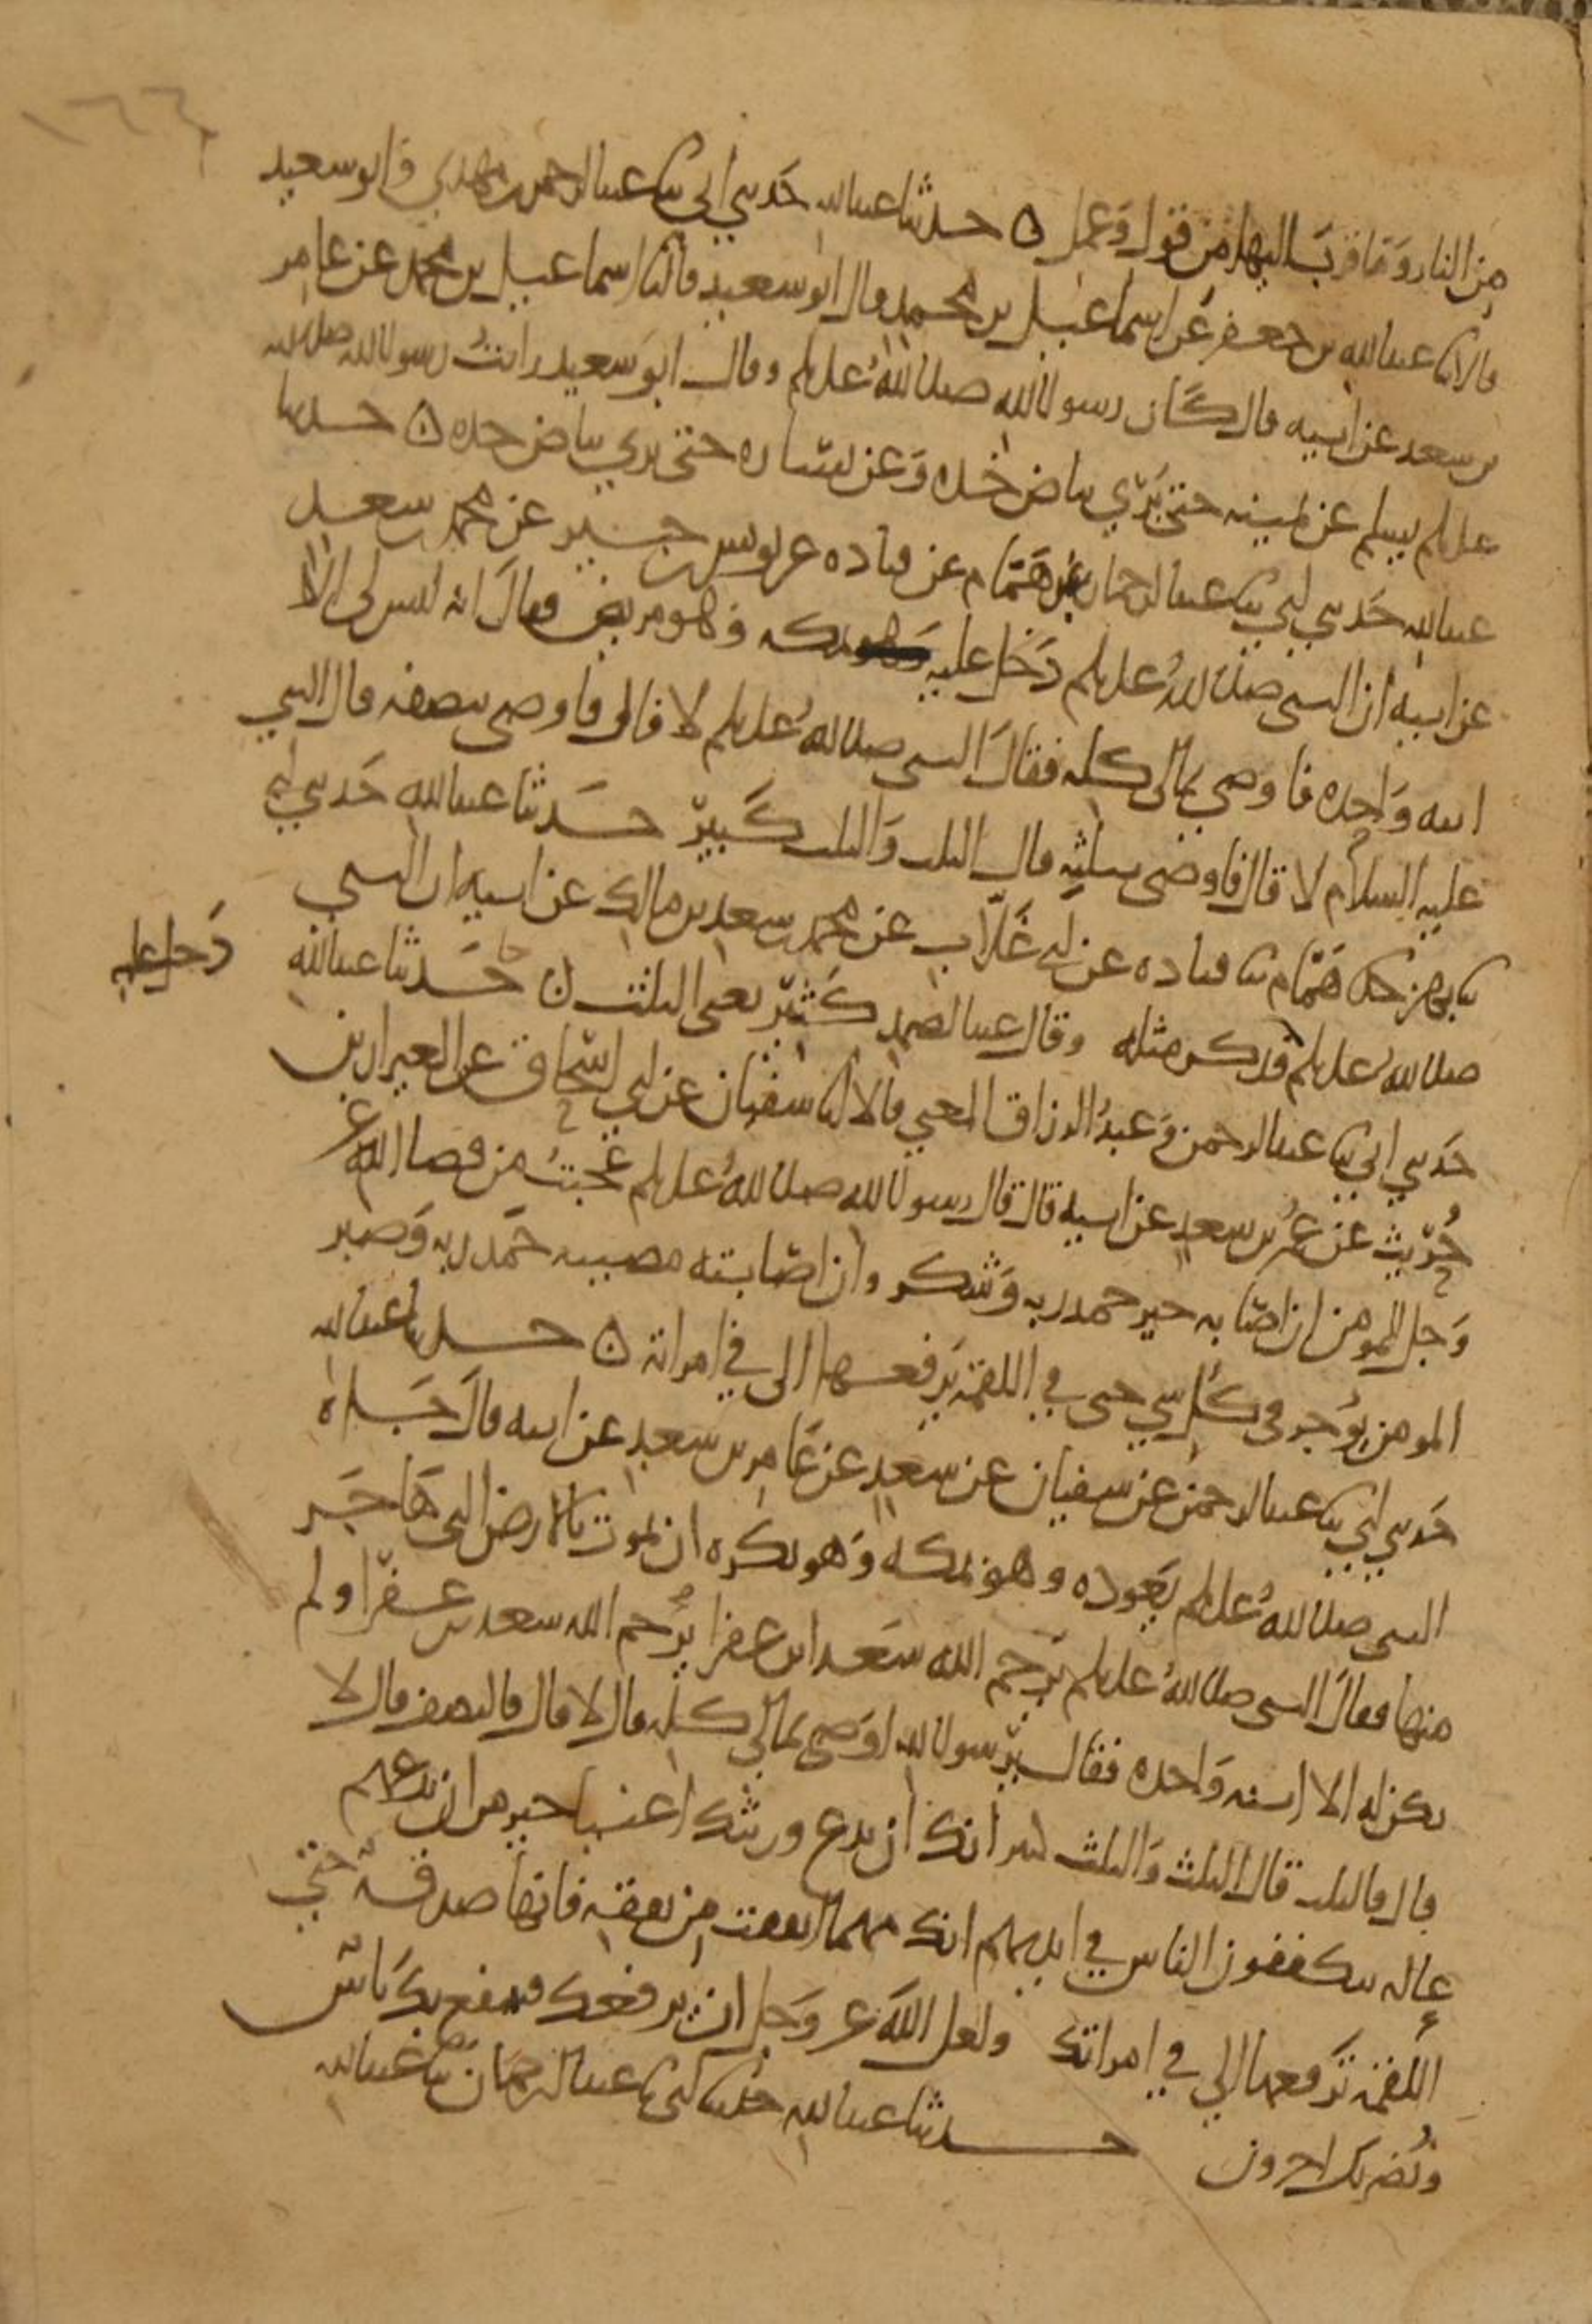 ١٦٦
من النار وما قرب اليها من قول وعمل ه حدثنا عبد الله حدثني ابي ثنا عبد الرحمن بن مهدي وابو سعيد
قالا ثنا عبد الله بن جعفر عن اسماعيل بن محمد قال ابو سعيد قال ثنا اسماعيل بن محمد عن عامر
بن سعد عن ابيه قال كان رسول الله صلى الله عليه وسلم وقال ابو سعيد رايت رسول الله صلى الله
عليه وسلم يسلم عن يمينه حتى يرى بياض خده وعن يساره حتى يرى بياض خده ه حدثنا
عبد الله حدثني ابي ثنا عبد الرحمان عن همام عن قتاده عن يونس بن جبير عن محمد بن سعد
عن ابيه ان النبي صلى الله عليه وسلم دخل عليه بمكه وهو مريض فقال انه ليس لي الا
ابنه واحده فاوصي بمالي كله فقال النبي صلى الله عليه وسلم لا قال فاوصي بنصفه قال النبي
عليه السلام لا قال فاوصي بثلثه قال الثلث والثلث كبير حدثنا عبد الله حدثني ابي
ثنا بهز ثنا همام ثنا قتاده عن ابي غلاب عن محمد بن سعد بن مالك عن ابيه ان النبي
دخل عليه
صلى الله عليه وسلم فذكر مثله وقال عبد الصمد كثير يعني الثلث ه حدثنا عبد الله
حدثني ابي ثنا عبد الرحمن وعبد الرزاق المعنى قالا انا سفيان عن ابي اسحاق عن العيزار بن
حريث عن عمر بن سعد عن ابيه قال قال رسول الله صلى الله عليه وسلم عجبت من قضا الله عز
وجل للمومن ان اصابه خير حمد ربه وشكر وان اصابته مصيبه حمد ربه وصبر
المومن يوجر في كل شي حتى في اللقمة يرفعها الى في امراته ه حدثنا عبد الله
حدثني ابي ثنا عبد الرحمن عن سفيان عن سعد عن عامر بن سعد عن ابيه قال جاه
النبي صلى الله عليه وسلم يعوده وهو بمكه وهو يكره ان يموت بالارض التي هاجر
منها فقال النبي صلى الله عليه وسلم يرحم الله سعد ابن عفرا يرحم الله سعد بن عفرا ولم
يكن له الا ابنه واحده فقال يرسول الله اوصي بمالي كله قال لا قال فالنصف قال لا
قال فالثلث قال الثلث والثلث كثير انك ان تدع ورثتك اغنيا خير من ان تدعهم
عاله يتكففون الناس في ايديهم انك مهما انفقت من نفقه فانها صدقة حتى
اللقمة ترفعها الى في امراتك ولعل الله عز وجل ان يرفعك فينفع بك ناس
ويضر بك اخرون حدثنا عبد الله حدثنا ابي ثنا عبد الرحمان ثنا عبد الله